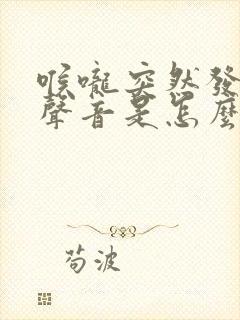 喉嚨突然發
聲音是怎麼
苟波